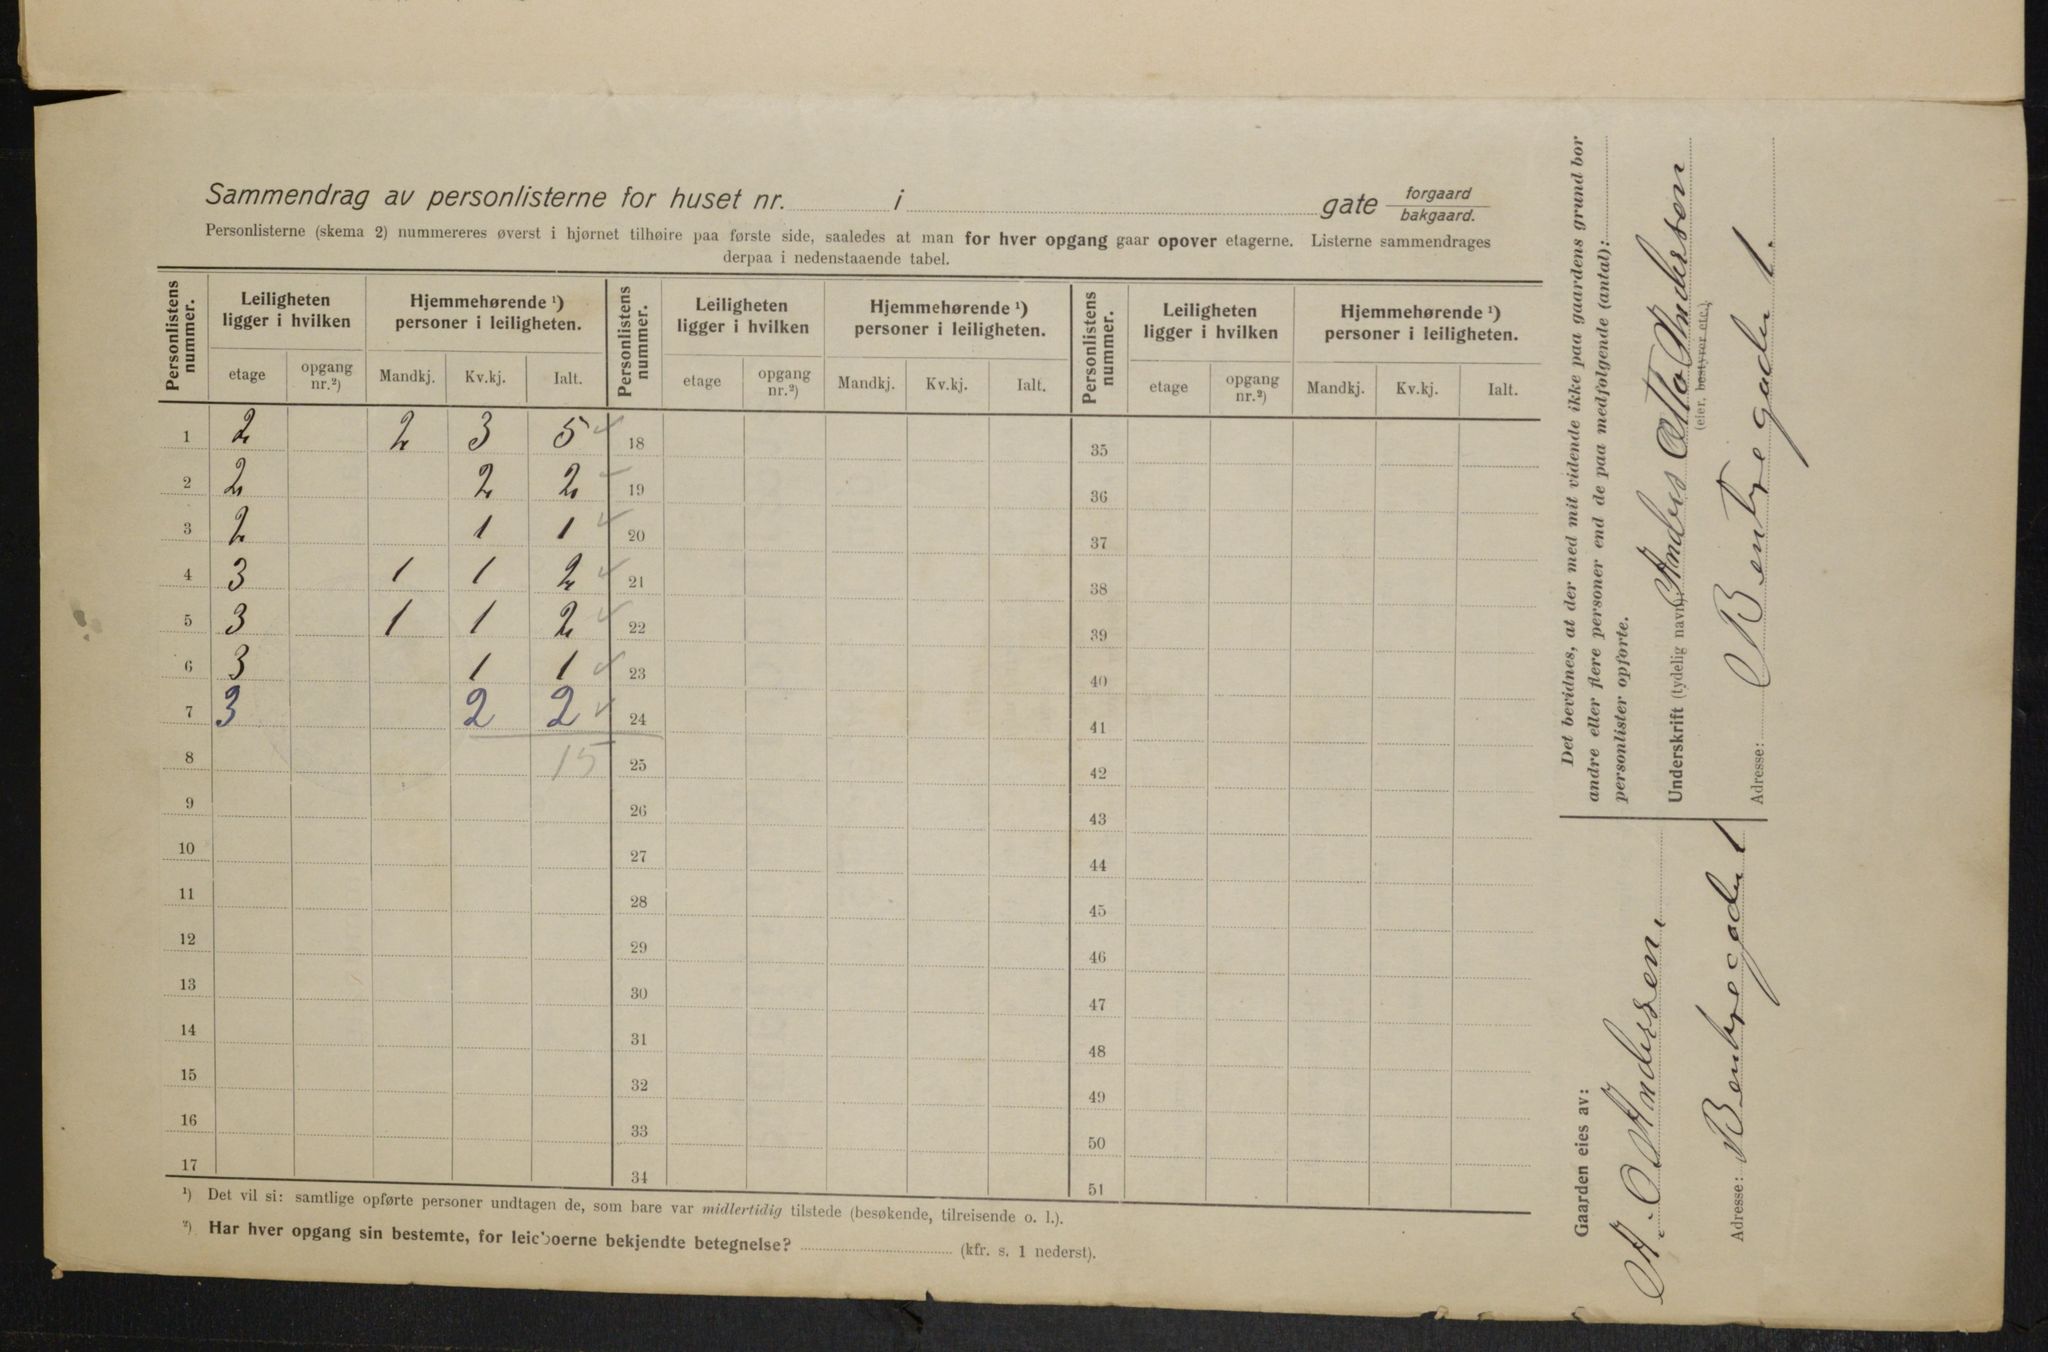 Sammendrag av personlisterne for huset nr. i gate forgaard
bakgaard.
Personlisterne (skema 2) nummereres øverst i hjørnet tilhøire paa første side, saaledes at man for hver opgang gaar opover etagerne. Listerne sammendrages
derpaa i nedenstaaende tabel.
Personlistens nummer. Leiligheten ligger i hvilken Hjemmehørende ¹) personer i leiligheten. Personlistens nummer. Leiligheten ligger i hvilken Hjemmehørende ¹) personer i leiligheten. Personlistens nummer. Leiligheten ligger i hvilken Hjemmehørende ¹) personer i leiligheten.
etage opgang nr.²) Mandkj. Kv.kj. Ialt. etage opgang nr.²) Mandkj. Kv.kj. Ialt. etage opgang nr.²) Mandkj. Kv.kj. Ialt.
1 2 2 3 5 ✓ 18 35
2 2 2 2 ✓ 19 36
3 2 1 1 ✓ 20 37
4 3 1 1 2 ✓ 21 38
5 3 1 1 2 ✓ 22 39
6 3 1 1 ✓ 23 40
7 3 2 2 ✓ 24 41
8 15 25 42
9 26 43
10 27 44
11 28 45
12 29 46
13 30 47
14 31 48
15 32 49
16 33 50
17 34 51
¹) Det vil si: samtlige opførte personer undtagen de, som bare var midlertidig tilstede (besøkende, tilreisende o. l.).
²) Har hver opgang sin bestemte, for leieboerne bekjendte betegnelse? (kfr. s. 1 nederst).
Det bevidnes, at der med mit vidende ikke paa gaardens grund bor
andre eller flere personer end de paa medfølgende (antal):
personlister opførte.
Underskrift (tydelig navn) Anders Otto Anderssen
(eier, bestyrer etc.)
Adresse: Bentsegaden 1.
Gaarden eies av:
A. O. Anderssen.
Adresse: Bentsegaden 1